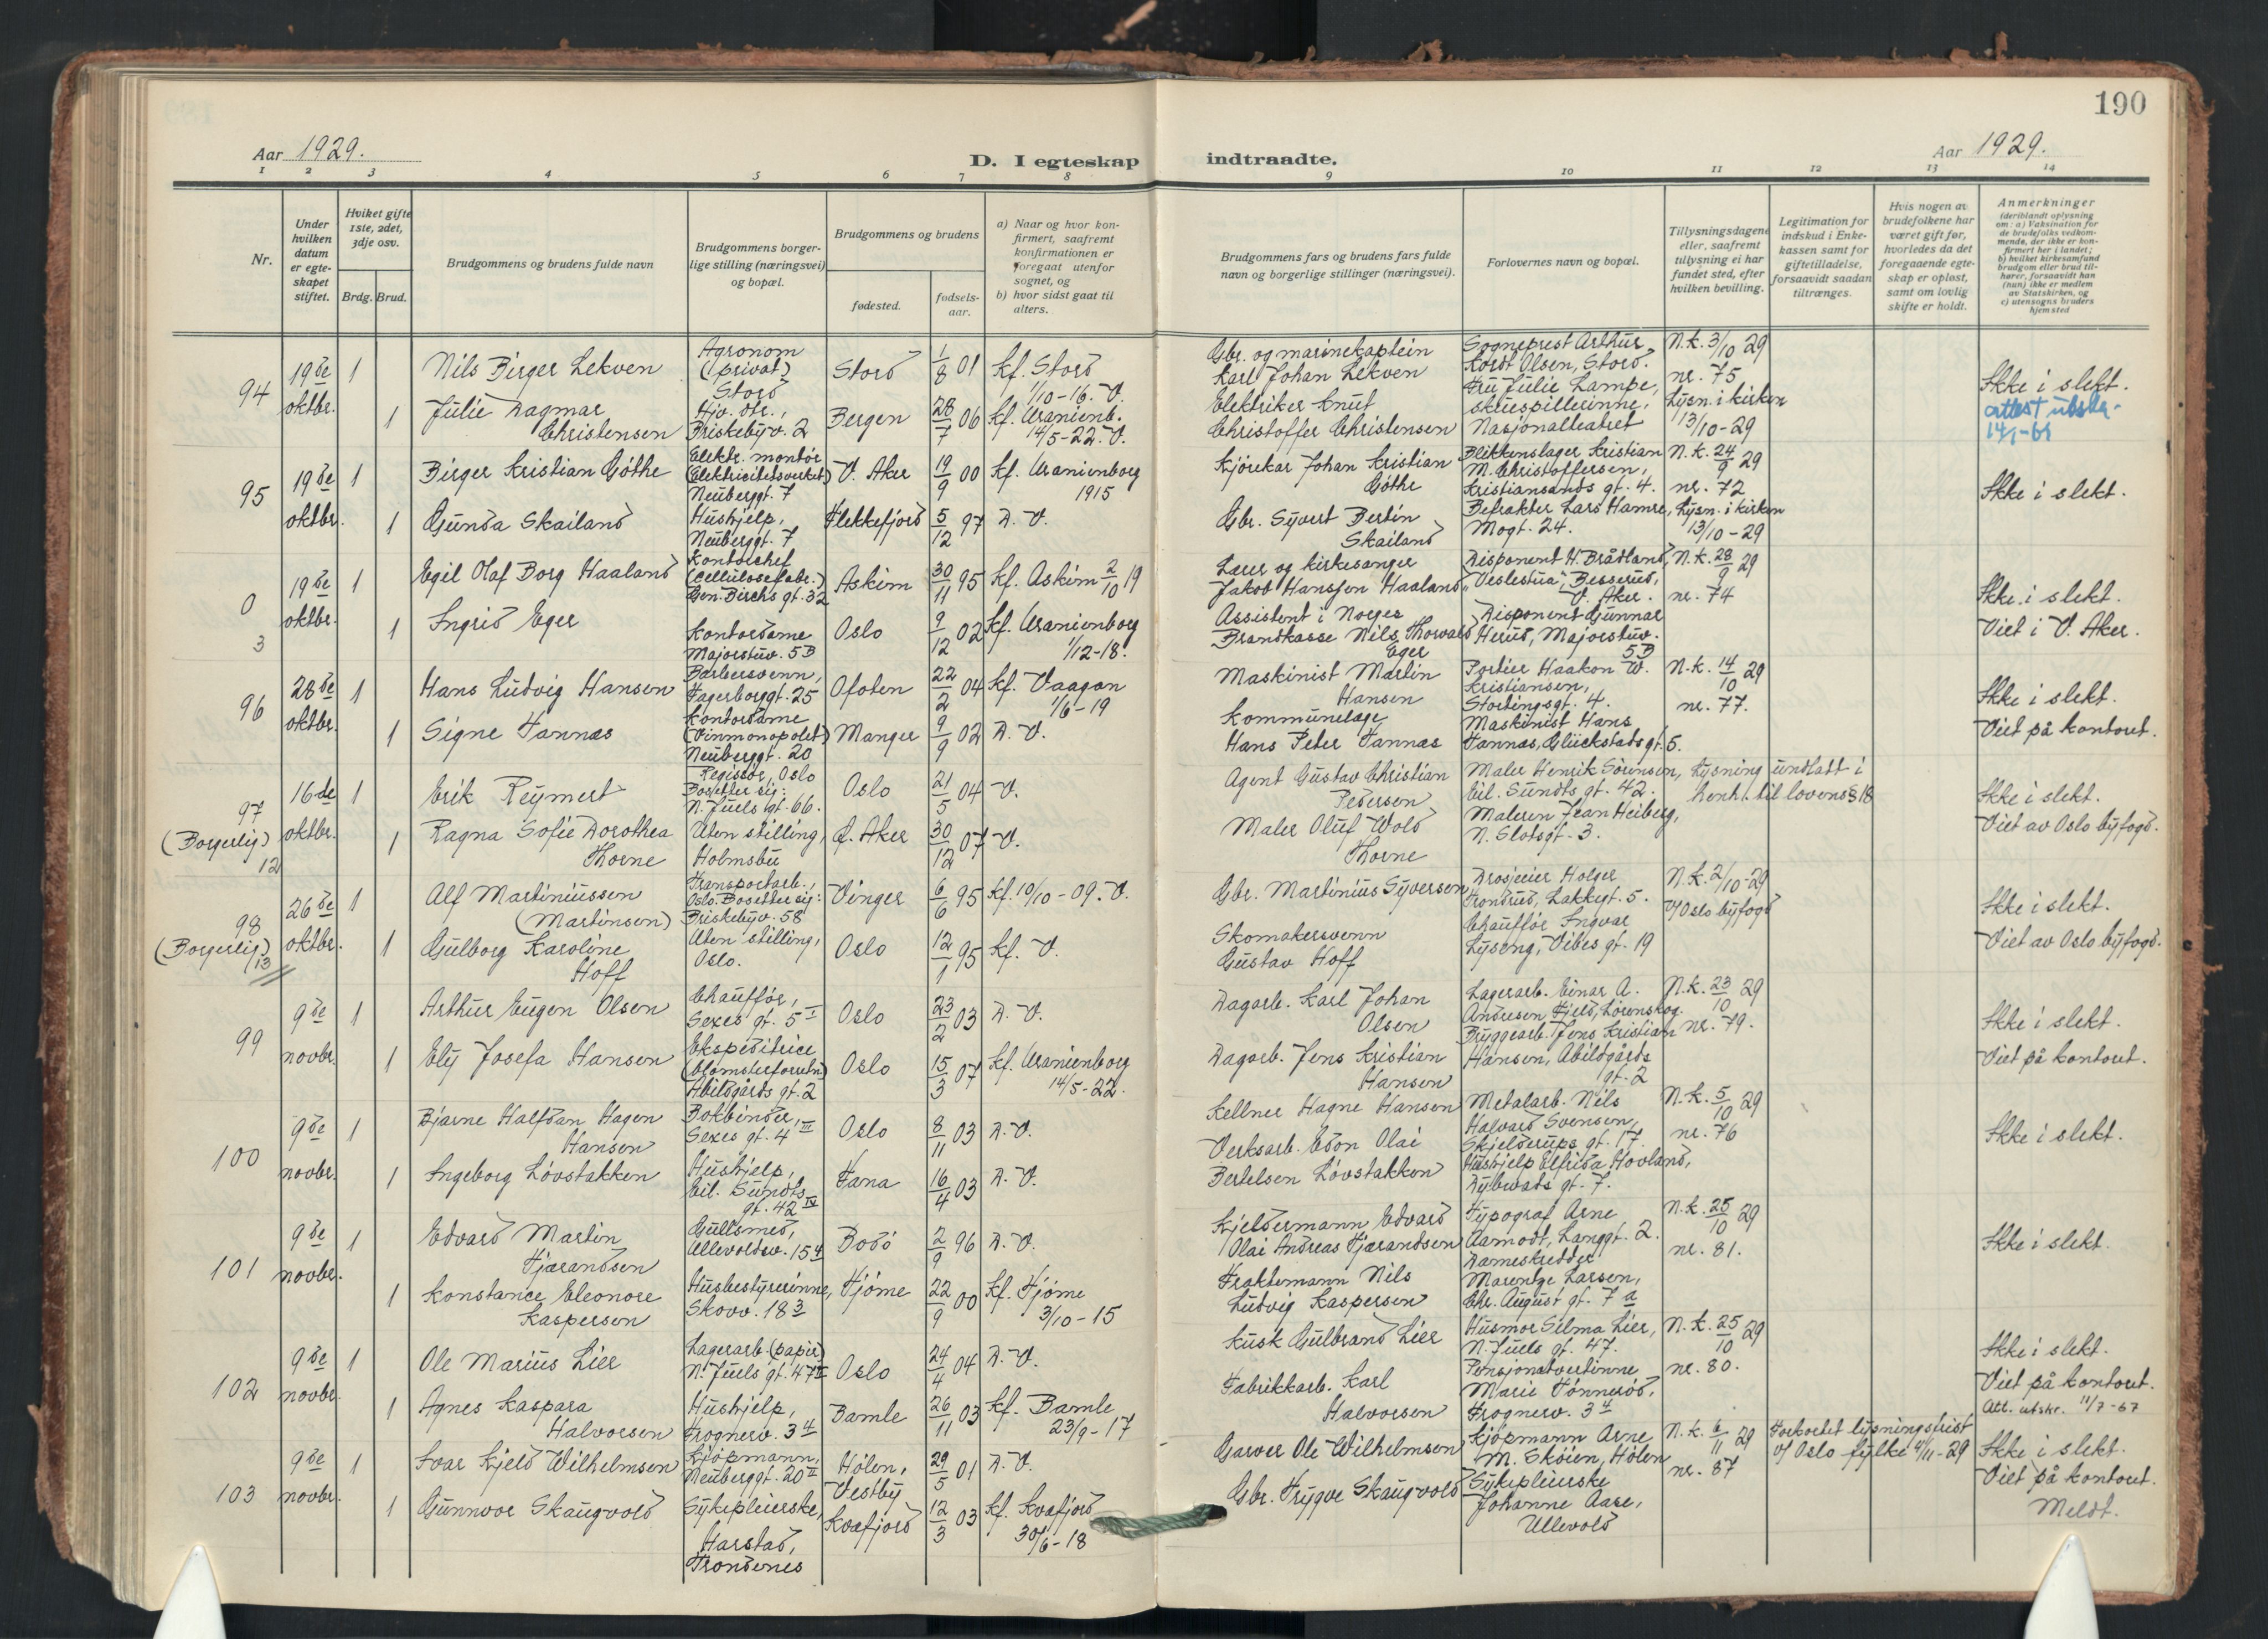 190
Aar 1929.
D. I egteskap indtraadte.
Aar 1929.
1 2 3 4 5 6 7 8 9 10 11 12 13 14
Nr.
Under hvilken datum er egteskapet stiftet.
Hviket gifte 1ste, 2det, 3dje osv.
Brdg. Brud.
Brudgommens og brudens fulde navn
Brudgommens borgerlige stilling (næringsvei) og bopæl.
Brudgommens og brudens
fødested.
fødselsaar.
a) Naar og hvor konfirmert, saafremt konfirmationen er foregaat utenfor sognet, og
b) hvor sidst gaat til alters.
Brudgommens fars og brudens fars fulde navn og borgerlige stillinger (næringsvei).
Forlovernes navn og bopæl.
Tillysningsdagene eller, saafremt tillysning ei har fundet sted, efter hvilken bevilling.
Legitimation for indskud i Enkekassen samt for giftetilladelse, forsaavidt saadan tiltrænges.
Hvis nogen av brudefolkene har været gift før, hvorledes da det foregaaende egteskap er opløst, samt om lovlig skifte er holdt.
Anmerkninger
(deriblandt oplysning om: a) Vaksination for de brudefolks vedkommende, der ikke er konfirmert her i landet;
b) hvilket kirkesamfund brudgom eller brud tilhører, forsaavidt han (hun) ikke er medlem av Statskirken, og
c) utensogns bruders hjemsted
94 19de oktbr. 1 Nils Birger Lekven Agronom (privat) Stord Stord 1/8 01 kf. Stord 1/10-16. V. Gbr. og marinekaptein Karl Johan Lekven Sogneprest Arthur Kordt Olsen, Stord. N.k. 3/10 29 nr. 75 Ikke i slekt.
1 Julie Dagmar Christensen Hjv. dtr., Briskebyv. 2 Bergen 28/7 06 kf. Uranienb. 14/5-22. V. Elektriker Knut Christoffer Christensen Fru Julie Lampe, skuespillerinne, Nasjonalteatret Lysn. i kirken 13/10-29 attest utskr.
95 19de oktbr. 1 Birger Kristian Göthe Elektr. montør (Elektricitetsverket) Neuberggt. 7 V. Aker 19/9 00 kf. Uranienborg 1915 Kjørekar Johan Kristian Göthe Blikkenslager Kristian M. Christoffersen, Kristiansands gt. 4. N.k. 24/9 29 nr. 72 Ikke i slekt.
1 Gunda Skailand Hushjelp, Neuberggt. 7 Flekkefjord 5/12 97 D. V. Gbr. Syvert Bertin Skailand Befrakter Lars Hamre, Mogt. 24. Lysn. i kirken 13/10-29
0 3 19de oktbr. 1 Egil Olaf Borg Haaland Kontorchef (cellulosefabr.) Gen. Birchs gt. 32 Askim 30/11 95 kf. Askim 2/10 19 Lærer og kirkesanger Jakob Hansjen Haaland Disponent H. Brådland, "Veslestua", Besserud, V. Aker. N.k. 28/9 29 nr. 74 Ikke i slekt.
1 Ingrid Eger Kontordame Majorstuv. 5B Oslo 9/12 02 kf. Uranienborg 1/12-18. Assistent i Norges Brandkasse Nils Thorvald Eger Disponent Gunnar Herud, Majorstuv. 5B Viet i V. Aker.
96 28de oktbr. 1 Hans Ludvig Hansen Barbersvenn, Fagerborggt. 25 Ofoten 22/2 04 kf. Vaagan 1/6-19 Maskinist Martin Hansen Portier Haakon W. Kristiansen, Stortingsgt. 4. N.k. 14/10 29 nr. 77. Ikke i slekt.
1 Signe Fannas Kontordame (Vinmonopolet) Neuberggt. 20 Manger 9/9 02 D. V. Kommunelæge Hans Peter Fannas Maskinist Hans Fannas, Glückstads gt. 5. Viet på kontoret.
97 (Borgerlig) 12 16de oktbr. 1 Erik Reymert Regissør, Oslo Bosetter sig: N. Juels gt. 66. Oslo 21/5 04 V. Agent Gustav Christian Pedersen Maler Henrik Sörensen, Eil. Sundts gt. 42. Lysning undlatt i henh. til lovens § 18 Ikke i slekt.
1 Ragna Sofie Dorothea Thorne Uten stilling, Holmsbu Ø. Aker 30/12 07 V. Maler Oluf Wold Thorne Maleren Jean Heiberg, N. Slotsgt. 3. Viet av Oslo byfogd.
98 (Borgerlig) 13 26de oktbr. 1 Alf Martiniussen (Martinsen) Transportarb., Oslo. Bosetter sig: Briskebyv. 58 Vinger 6/6 95 kf. 10/10-09. V. Gbr. Martinius Syversen Drosjeeier Holger Trondrud, Lakkegt. 5. N.k. 2/10-29 v/ Oslo byfogd Ikke i slekt.
1 Gulborg Karoline Hoff Uten stilling, Oslo. Oslo 12/1 95 kf. V. Skomakersvenn Gustav Hoff Chauffør Ingvar Lyseng, Vibes gt. 19 Viet av Oslo byfogd.
99 9de novbr. 1 Arthur Eugen Olsen Chauffør, Sexes gt. 5 I Oslo 23/2 03 D. V. Dagarb. Karl Johan Olsen Lagerarb. Einar A. Andresen Fjeld, Lørenskog. N.k. 23/10 29 nr. 79. Ikke i slekt.
1 Ely Josefa Hansen Ekspeditrice (blomsterforretn.) Abildgårds gt. 2 Oslo 15/3 07 kf. Uranienborg 14/5-22. Dagarb. Jens Kristian Hansen Bryggearb. Jens Kristian Hansen, Abildgårds gt. 2 Viet på kontoret.
100 9de novbr. 1 Bjarne Halfdan Hagen Hansen Bokbinder, Sexes gt. 4 III Oslo 8/11 03 D. V. Kellner Hagne Hansen Metalarb. Nils Halvard Svensen, Skjelderups gt. 17. N.k. 5/10 29 nr. 76 Ikke i slekt.
1 Ingeborg Lövstakken Hushjelp, Eil. Sundts gt. 42 IV Fana 16/4 03 D. V. Verksarb. Edon Olai Bertelsen Lövstakken Hushjelp Elfrida Hovland, Dybwads gt. 7.
101 9de novbr. 1 Edvard Martin Fjærandsen Gullsmed, Ullevoldsv. 15 4 Bodö 2/9 96 D. V. Kjeldermann Edvard Olai Andreas Fjærandsen Typograf Arne Aamodt, Langgt. 2. N.k. 25/10 29 nr. 81. Ikke i slekt.
1 Konstance Eleonore Kaspersen Husbestyrerinne, Skovv. 18 3 Tjöme 22/9 00 kf. Tjöme 3/10-15 Fraktemann Nils Ludvig Kaspersen Dameskredder Marentze Larsen, Chr. August gt. 7 a
102 9de novbr. 1 Ole Marius Lier Lagerarb. (papir) N. Juels gt. 47 II Oslo 24/4 04 D. V. Kusk Gulbrand Lier Husmor Selma Lier, N. Juels gt. 47. N.k. 25/10 29 nr. 80. Ikke i slekt.
1 Agnes Kaspara Halvorsen Hushjelp, Frognerv. 3 4 Bamle 26/11 03 kf. Bamle 23/9-17 Fabrikkarb. Karl Halvorsen Pensjonatvertinne Marie Tönnerød, Frognerv. 3 4 Viet på kontoret.
Att. utskr. 11/7-67
103 9de novbr. 1 Ivar Kjeld Wilhelmsen Kjöpmann, Neuberggt. 20 II Hölen, Vestby 29/5 01 D. V. Garver Ole Wilhelmsen Kjöpmann Arne M. Sköien, Hölen N.k. 6/11 29 nr. 87 Forkortet lysningsfrist v/ Oslo fylke 4/11-29 Ikke i slekt.
1 Gunnvor Skaugvold Sykepleierske, Harstad, Trondenes Kvæfjord 12/3 03 kf. Kvæfjord 30/6-18 Gbr. Trygve Skaugvold Sykepleierske Johanne Aase, Ullevold Viet på kontoret.
Meldt.